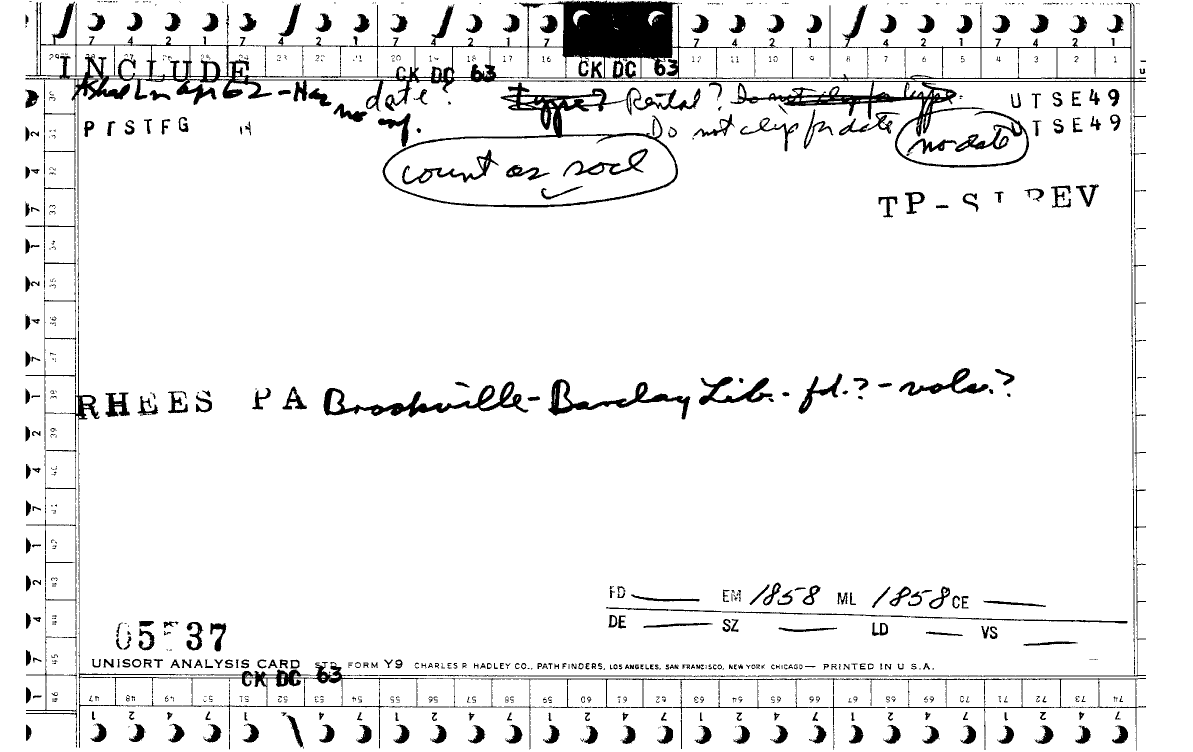 7 4 2 1 7 4 2 1 7 4 2 1 7 7 4 2 1 7 4 2 1 7 4 2 1
23 22 21 20 19 18 17 16 12 11 10 9 8 7 6 5 4 3 2 1
INCLUDE CK DC 63 CK DC 63
Asked Ln Apr 62 - Has no inf. date? Type? Rental? Do not clip for type. UTSE49
Do not clip for date no date UTSE49
count as socl
REV
RHEES PA Brookville - Barclay Lib. - fd.? - vols.?
FD EM 1858 ML 1858 CE
DE SZ LD VS
UNISORT ANALYSIS CARD STD. FORM Y9 CHARLES R. HADLEY CO., PATHFINDERS, LOS ANGELES, SAN FRANCISCO, NEW YORK CHICAGO — PRINTED IN U S A.
CK DC 63
47 48 49 50 51 52 53 54 55 56 57 58 59 60 61 62 63 64 65 66 67 68 69 70 71 72 73 74
1 2 4 7 1 2 4 7 1 2 4 7 1 2 4 7 1 2 4 7 1 2 4 7 1 2 4 7